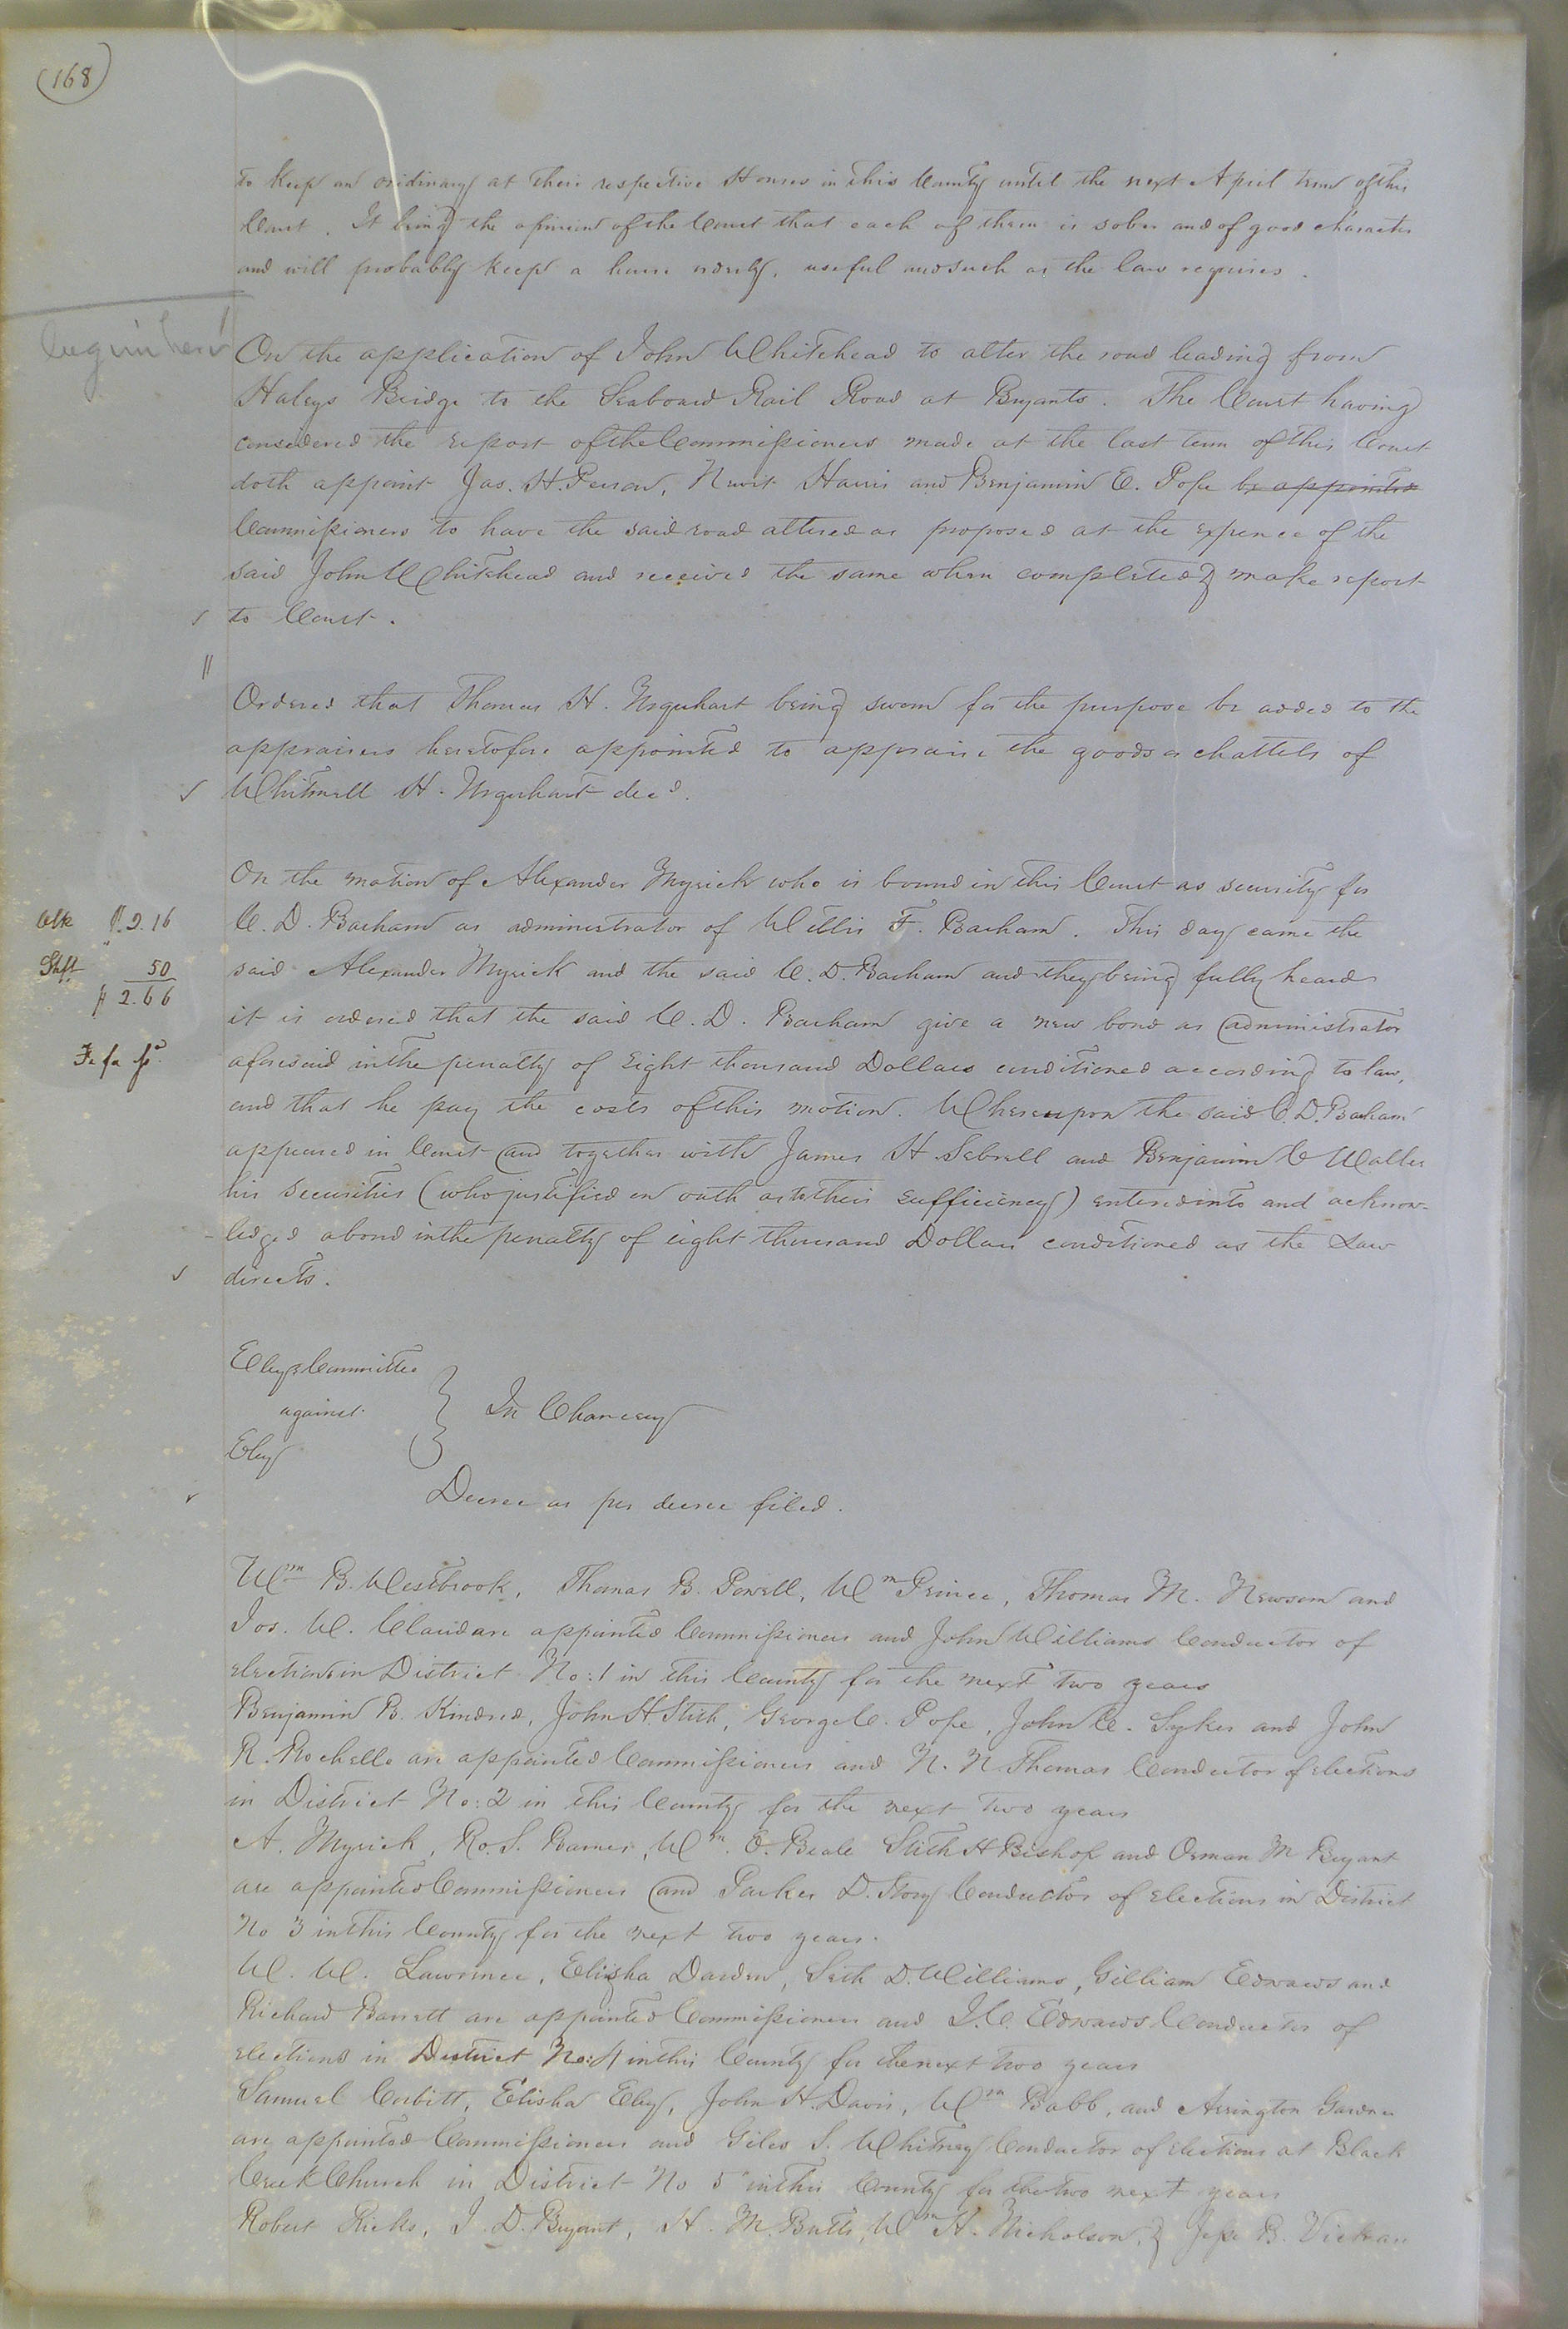 (168)
to keep an ordinary at their respective Houses in this County until the next April term of this
Court. It being the opinion of the Court that each of them is sober and of good character
and will probably keep a house orderly, useful and such as the law requires.
begin here
On the application of John Whitehead to alter the road leading from
Haleys Bridge to the Seaboard Rail Road at Bryants. The Court having
considered the report of the Commissioners made at the last term of this Court
doth appoint Jas. H. Person, Newit Harris and Benjamin E. Pope be appointed
Commissioners to have the said road altered as proposed at the expence of the
said John Whitehead and received the same when completed & make report
to Court.
Ordered that Thomas H. Urquhart being sworn for the purpose be added to the
appraisers heretofore appointed to appraise the goods & chattels of
Whitmell H. Urquhart decd.
On the motion of Alexander Myrick who is bound in this Court as security for
Clk $2.16
C. D. Barham as administrator of Willis F. Barham. This day came the
Shff 50
said Alexander Myrick and the said C. D. Barham and they being fully heard
$2.66
it is ordered that the said C. D. Barham give a new bond as administrator
Fi fa
aforesaid in the penalty of Eight thousand Dollars conditioned according to law,
and that he pay the costs of this motion. Whereupon the said C. D. Barham
appeared in Court and together with James H Sebrell and Benjamin C Waller
his securities (who justified on oath as to their sufficiency) entered into and acknow-
ledged a bond in the penalty of eight thousand Dollars conditioned as the Law
directs.
Eleys Committee
against
In Chancery
Eley
Decree as per decree filed.
Wm B. Westbrook, Thomas B. Powell, Wm Prince, Thomas M. Newsom and
Jos. W. Claud are appointed Commissioners and John Williams Conductor of
elections in District No: 1 in this County for the next two years
Benjamin B. Kindred, John H. Stith, George C. Pope, John C. Sykes and John
R. Rochelle are appointed Commissioners and N. N Thomas Conductor of elections
in District No: 2 in this County for the next two years
A. Myrick, Ro. S. Barnes, Wm. O. Beale Stith H Bishop and Orman M Bryant
are appointed Commissioners and Parker D. Story Conductor of elections in District
No 3 in this County for the next two years.
W. W. Lawrence, Elisha Darden, Seth D. Williams, Gilliam Edwards and
Richard Barrett are appointed Commissioners and J. C. Edwards Conductor of
elections in District No: 4 in this County for the next two years
Samuel Corbitt, Elisha Eley, John H. Davis, Wm Babb, and Arrington Gardner
are appointed Commissioners and Giles S. Whitney Conductor of elections at Black
Creek Church in District No 5 in this County for the two next years
Robert Ricks, J. D. Bryant, H. M. Butts, Wm H. Nicholson, & Jesse B. Vick are